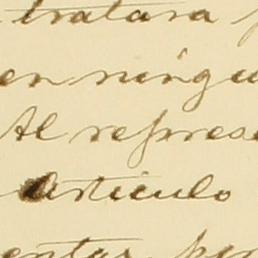 tratara
en ningu
Al represe
Artículo
entar per